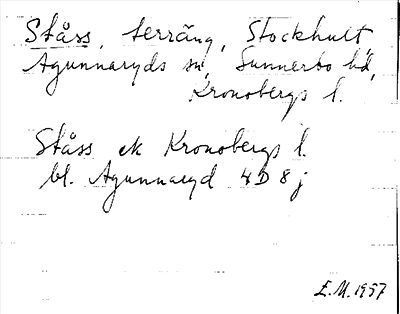 Ståss, terräng, Stockhult
Agunnaryds sn, Sunnerbo hd,
Kronobergs l.
Ståss ek Kronobergs l.
bl. Agunnaryd 4D 8j
E.M. 1957